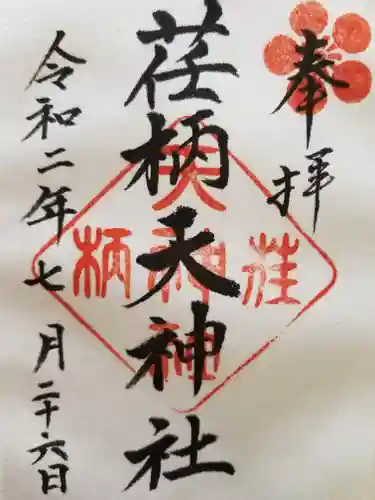 奉拝
荏柄天神社
令和二年七月二十六日
荏柄天神社